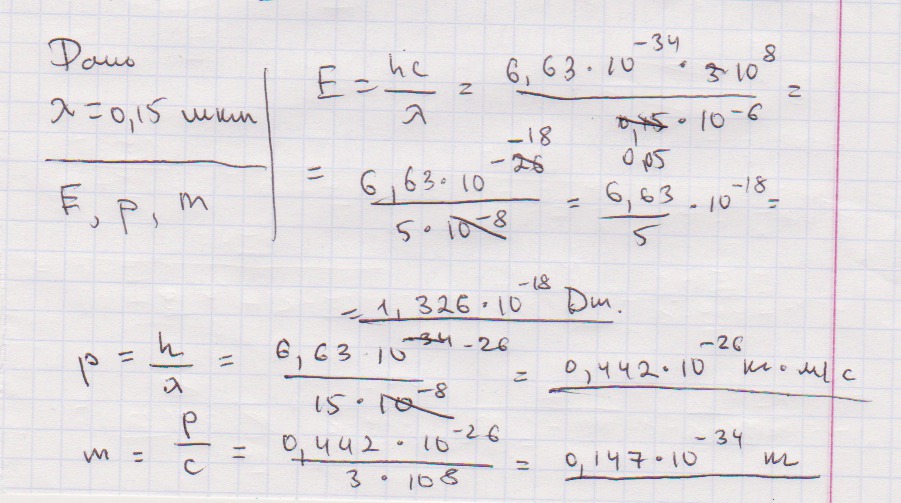 Дано
λ = 0,15 мкм
E, p, m
E = hc/λ = 6,63·10⁻³⁴ · 3·10⁸ / 0,15·10⁻⁶ =
0,05
= 6,63·10⁻²⁶ ⁻¹⁸ / 5·10⁻⁸ = 6,63/5 · 10⁻¹⁸ =
= 1,326·10⁻¹⁸ Дж.
p = h/λ = 6,63·10⁻³⁴ ⁻²⁶ / 15·10⁻⁸ = 0,442·10⁻²⁶ кг·м/с
m = p/c = 0,442·10⁻²⁶ / 3·10⁸ = 0,147·10⁻³⁴ кг